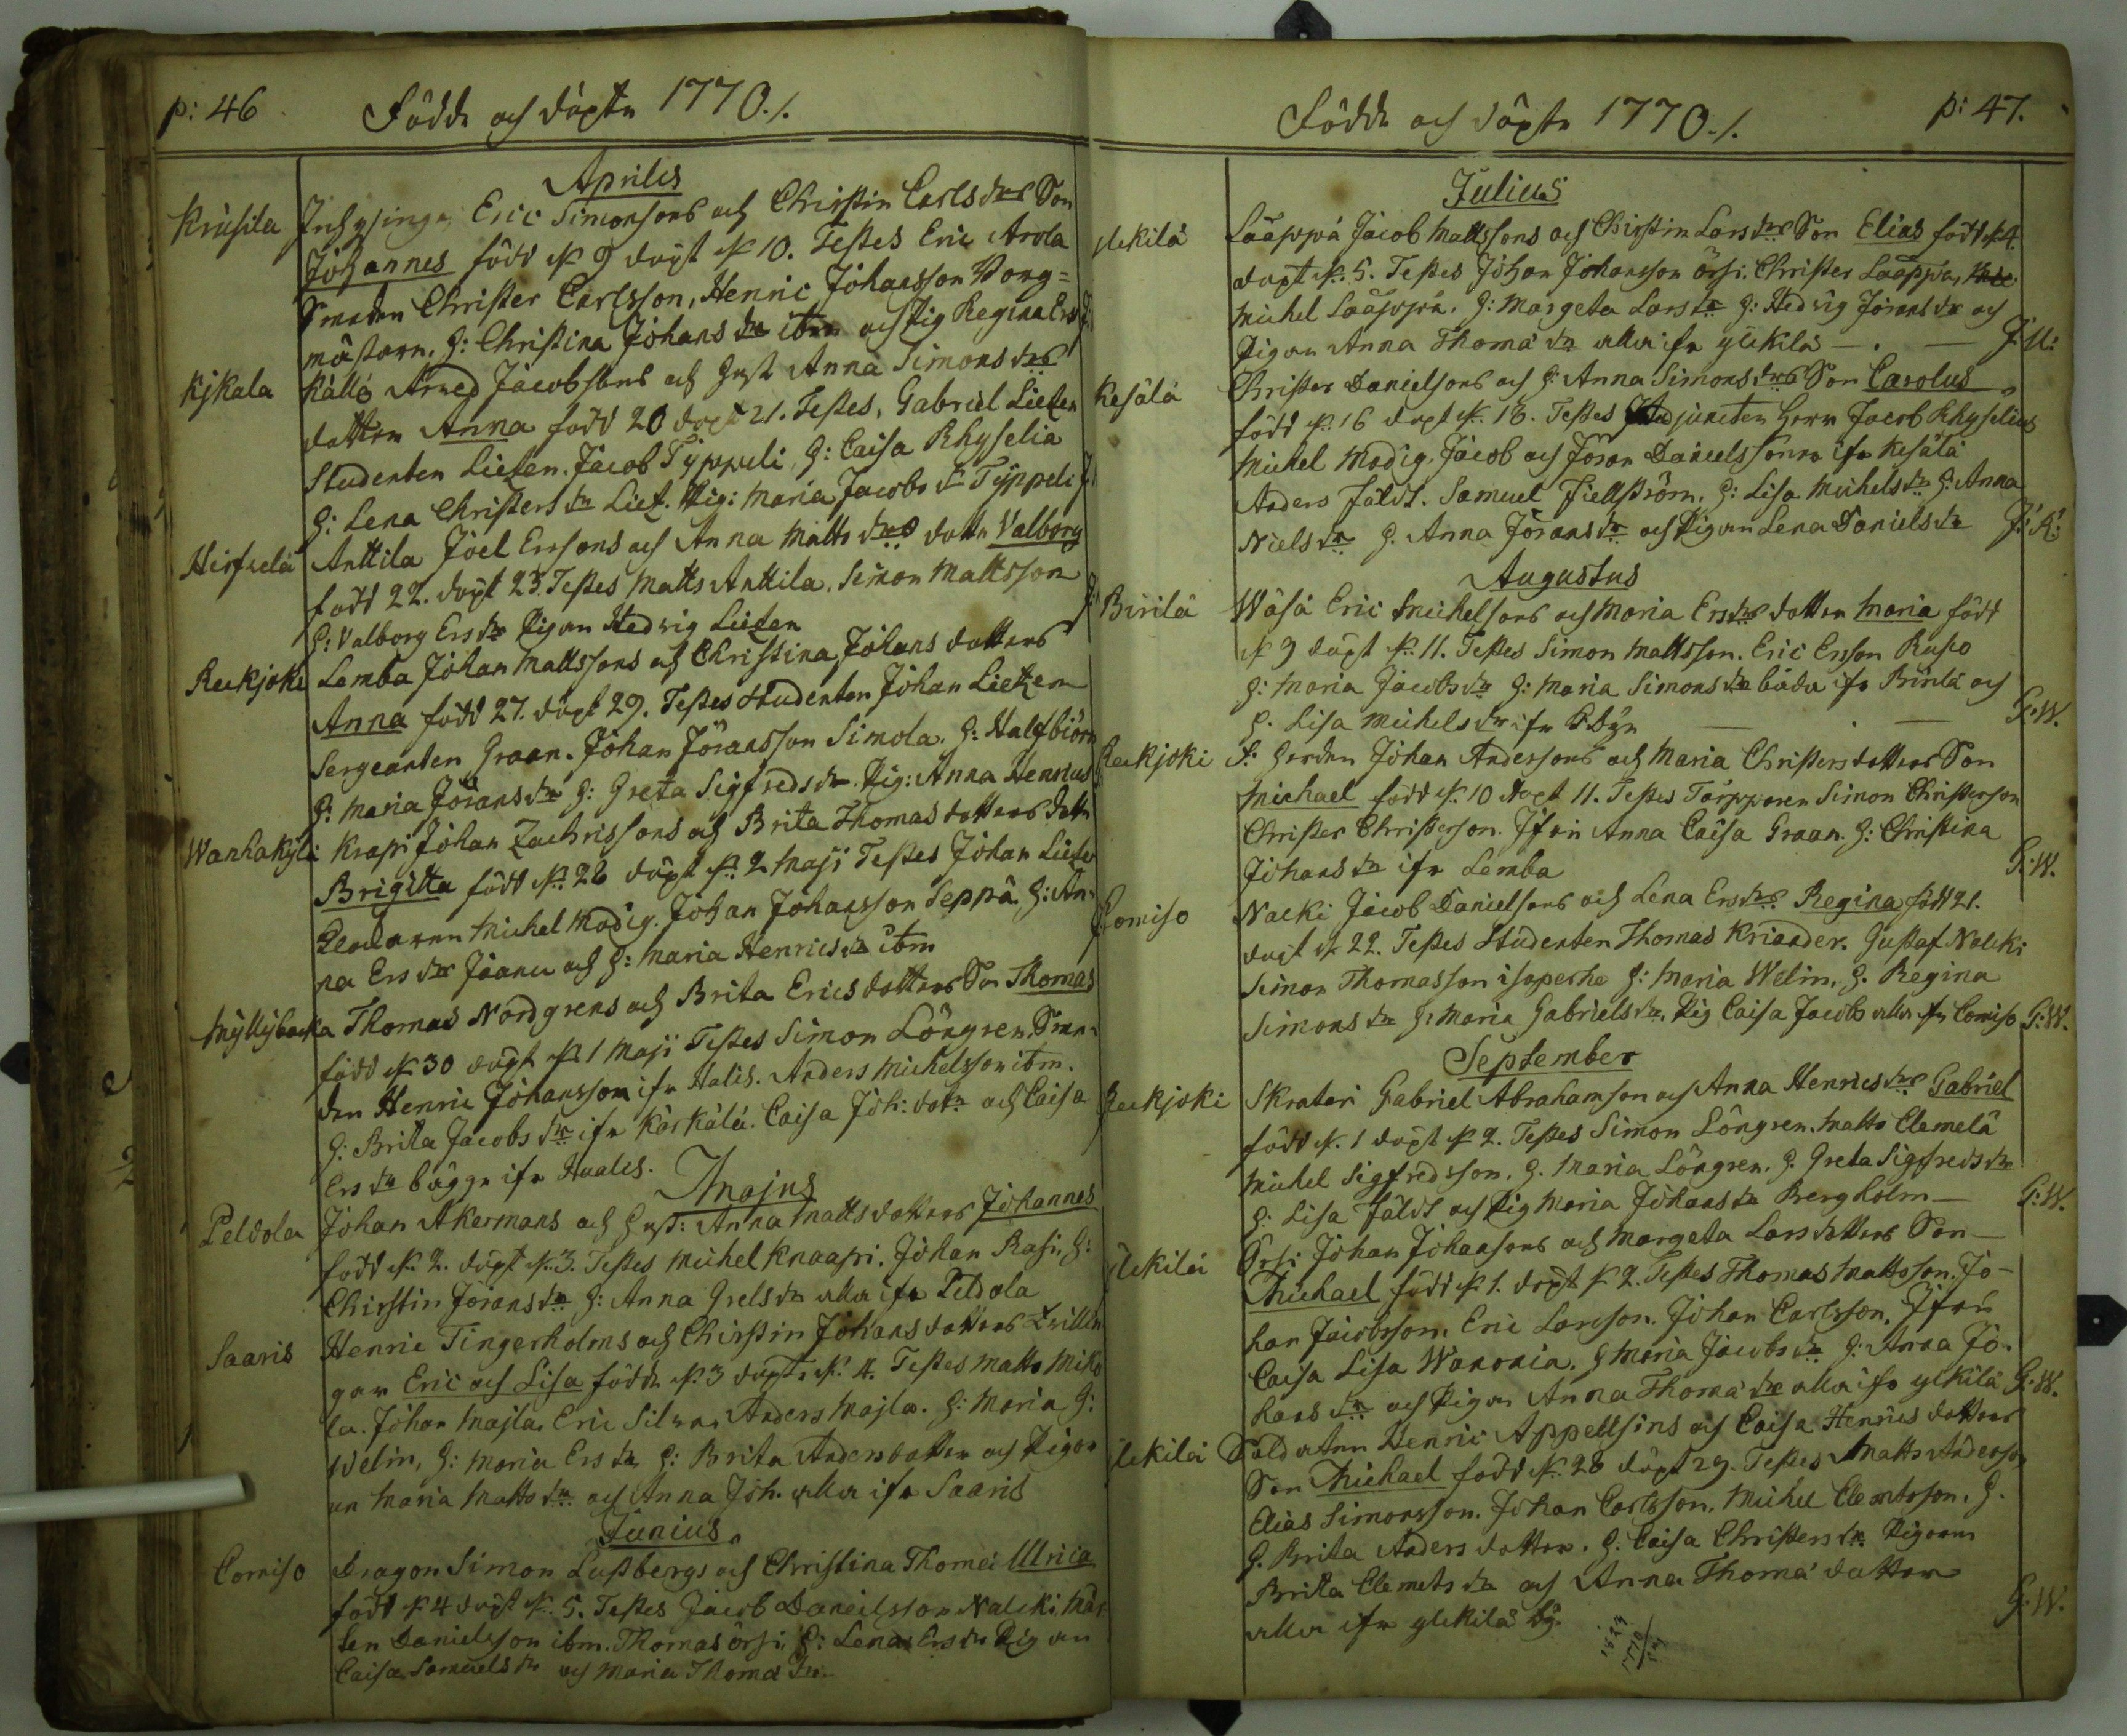 p: 46
Födde och döpte 1770./.
Aprilis
Krusila Eric Simonsons och Christin Carls dr Son
Johannes född d 9 döpt d 10. Testes Eric Arola
Smeden Christer Carlsson, Henric Johansson Vong=
mästarn, H: Christina Johans dr ibm och Pig Regina Ers
Kjkala Källö Arved Jacobsons och Hust Anna Simons drs
dotter Anna född 20 döpt 21. Testes, Gabriel Lietzen
Studenten Lietzen. Jacob Typpeli, H: Caisa Rhyselia
H: Lena Christers dr Liet. Pig: Maria Jacobs dr Typpeli
Hirfuela Anttila Joel Erssons och Anna Matts drs dottr Valborg
född 22. döpt 23. Testes Matts Anttila. Simon Mattsson
H: Valborg Ers dr Pigan Hedvig Lietzen
Reckjoki Lemba Johan Mattssons och Christina Johans dotters
Anna född 27. döpt 29. Testes Studenten Johan Lietzen
Sergeanten Graan. Johan Jöransson Simola. H: Halfbiörn
H: Maria Jörans dr H: Greta Sigfreds dr. Pig: Anna Henrics
Wanhakylä Krapi Johan Zachrissons och Brita Thomas dotters dottr
Brigitta född d: 28 döpt d: 2 Maji Testes Johan Lietze
Michel Modig. Johan Johansson Seppä H: An-
na Ers dr Jaanu och H: Maria Henrics dr ibm
Myllybacka Thomas Nordgrens och Brita Erics dotters Son Thomas
född d 30 döpt d 1 Maji Testes Simon Löngren Sme-
den Henric Johansson ifr Halis. Anders Michelsson ibm.
H: Brita Jacobs dr ifr Kärkälä. Caisa Joh: dotr och Caisa
Ers dr bägge ifr Haalis.
Majus
Peldola Johan Akermans och Hust: Anna Matts dotters Johannes
född d: 2. döpt d: 3. Testes Michel Knaapi. Johan Rasi, H:
Christin Jörans dr H: Anna Grels dr alla ifr Peldola
Saaris Henric Tingerholms och Christin Johans dotters Zwillin
gar Eric och Lisa födde d: 3 döpte d: 4. Testes Matts Mikō
la. Johan Majla, Eric Silwa. Anders Majla. H: Maria H:
Welin, H: Maria Ers dr, H: Brita Andersdotter och Pigor
ne Maria Matts dr och Anna Joh. alla ifr Saaris
Junius
Comiso Dragon Simon Lustbergs och Christina Thomæ Ulrica
född d 4 döpt d: 5. Testes Jacob Danielsson Nalcki, Mår
ten Danielsson ibm. Thomas örsi, H: Lena Ers dr Pig an
Caisa Samuels dr och Maria Thomæ dr
Födde och döpte 1770./.
p: 47.
Julius
ylikilä Laäppä Jacob Mattssons och Christin Lars drs Son Elias född d: 4
döpt d: 5. Testes Johan Johansson örsi. Christer Laäppä,
Michel Laäppä. H: Margeta Lars dr H: Hedvig Jörans dr och
Pigan Anna Thomæ dr alla ifr ylikilä
Kesälä Christer Danielsons och H: Anna Simons drs Son Carolus
född d: 16 döpt d: 18. Testes Adjuncten Herr Jacob Rhyselius
Michel Modig, Jacob och Jöran Danielssoner ifr Kesälä
Anders Fäldt. Samuel Fiellström. H: Lisa Michels dr H: Anna
Niels dr H. Anna Jörans dr och Pigan Lena Daniels dr
Augustus
Birilä Wäsä Eric Michelsons och Maria Ers drs dotter Maria född
d 9 döpt d: 11. Testes Simon Mattsson. Eric Ersson Ruso
H: Maria Jacobs dr H: Maria Simons dr båda ifr Birilä och
H. Lisa Michels dr ifr G:W.
Reckjoki Johan Anderssons och Maria Christersdotters Son
Michael född d: 10 döpt 11. Testes Torpparen Simon Christerson
Christer Christerson. Jfru Anna Caisa Graan. H: Christina
Johans dr ifr Lemba G:W.
Comiso Nalcki Jacob Danielsons och Lena Ers drs Regina född 21.
döpt d 22. Testes Studenten Thomas Kriander. Gustaf Nalcki
Simon Thomasson isoperhe H: Maria Welin, H. Regina
Simons dr H: Maria Gabriels dr, Pig Caisa Jacobs alla ifr Comiso G:W.
September
Reckjoki Skratari Gabriel Abrahamson och Anna Henrics drs Gabriel
född d. 1 döpt d 2. Testes Simon Löngren. Matts Clemelä
Michel Sigfredsson. H. Maria Löngren. H. Greta Sigfreds dr
H: Lisa Fäldt och Pig Maria Johans dr Bergholm G:W.
ylikilä Örsi Johan Johansons och Margeta Lars dotters Son
Michael född d 1. döpt d 2. Testes Thomas Mattsson. Jo-
han Jacobsson. Eric Larsson. Johan Carlsson. Jfru
Caisa Lisa Wanonia. H Maria Jacobs dr H: Anna Jo-
hans dr och Pigan Anna Thomæ dr alla ifr ylikilä G:W.
ylikilä Soldaten Henric Appellsins och Caisa Henrics dotters
Son Michael född d: 28 döpt 29. Testes Matts Anderson
Elias Simonsson. Johan Carlsson. Michel Clemetsson. H.
H. Brita Anders dotter. H: Caisa Christers dr. Pigorne
Brita Clemets dr och Anna Thomæ dotter
alla ifr ylikilä by. G:W.